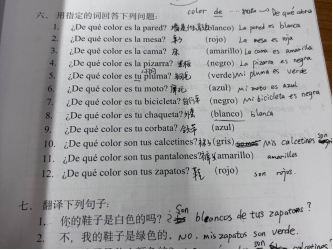 color de moto = De qué color
六、用指定的词回答下列问题:
1. ¿De qué color es la pared? (blanco) La pared es blanca
2. ¿De qué color es la mesa? (rojo) La mesa es roja
3. ¿De qué color es la cama? 床 (amarillo) La cama es amarilla
4. ¿De qué color es la pizarra? (negro) La pizarra es negra
5. ¿De qué color es tu pluma? 钢笔 (verde) Mi pluma es verde
6. ¿De qué color es tu moto? (azul) Mi moto es azul
7. ¿De qué color es tu bicicleta? 自行车 (negro) Mi bicicleta es negra
8. ¿De qué color es tu chaqueta? (blanco) blanca
9. ¿De qué color es tu corbata? (azul)
10. ¿De qué color son tus calcetines? (gris) Mis calcetines son
11. ¿De qué color son tus pantalones? (amarillo) amarillos
12. ¿De qué color son tus zapatos? 鞋 (rojo) son rojos
七、翻译下列句子:
1. 你的鞋子是白色的吗? ¿Son blancos de tus zapatos?
2. 不,我的鞋子是绿色的。 No. mis zapatos son verde.